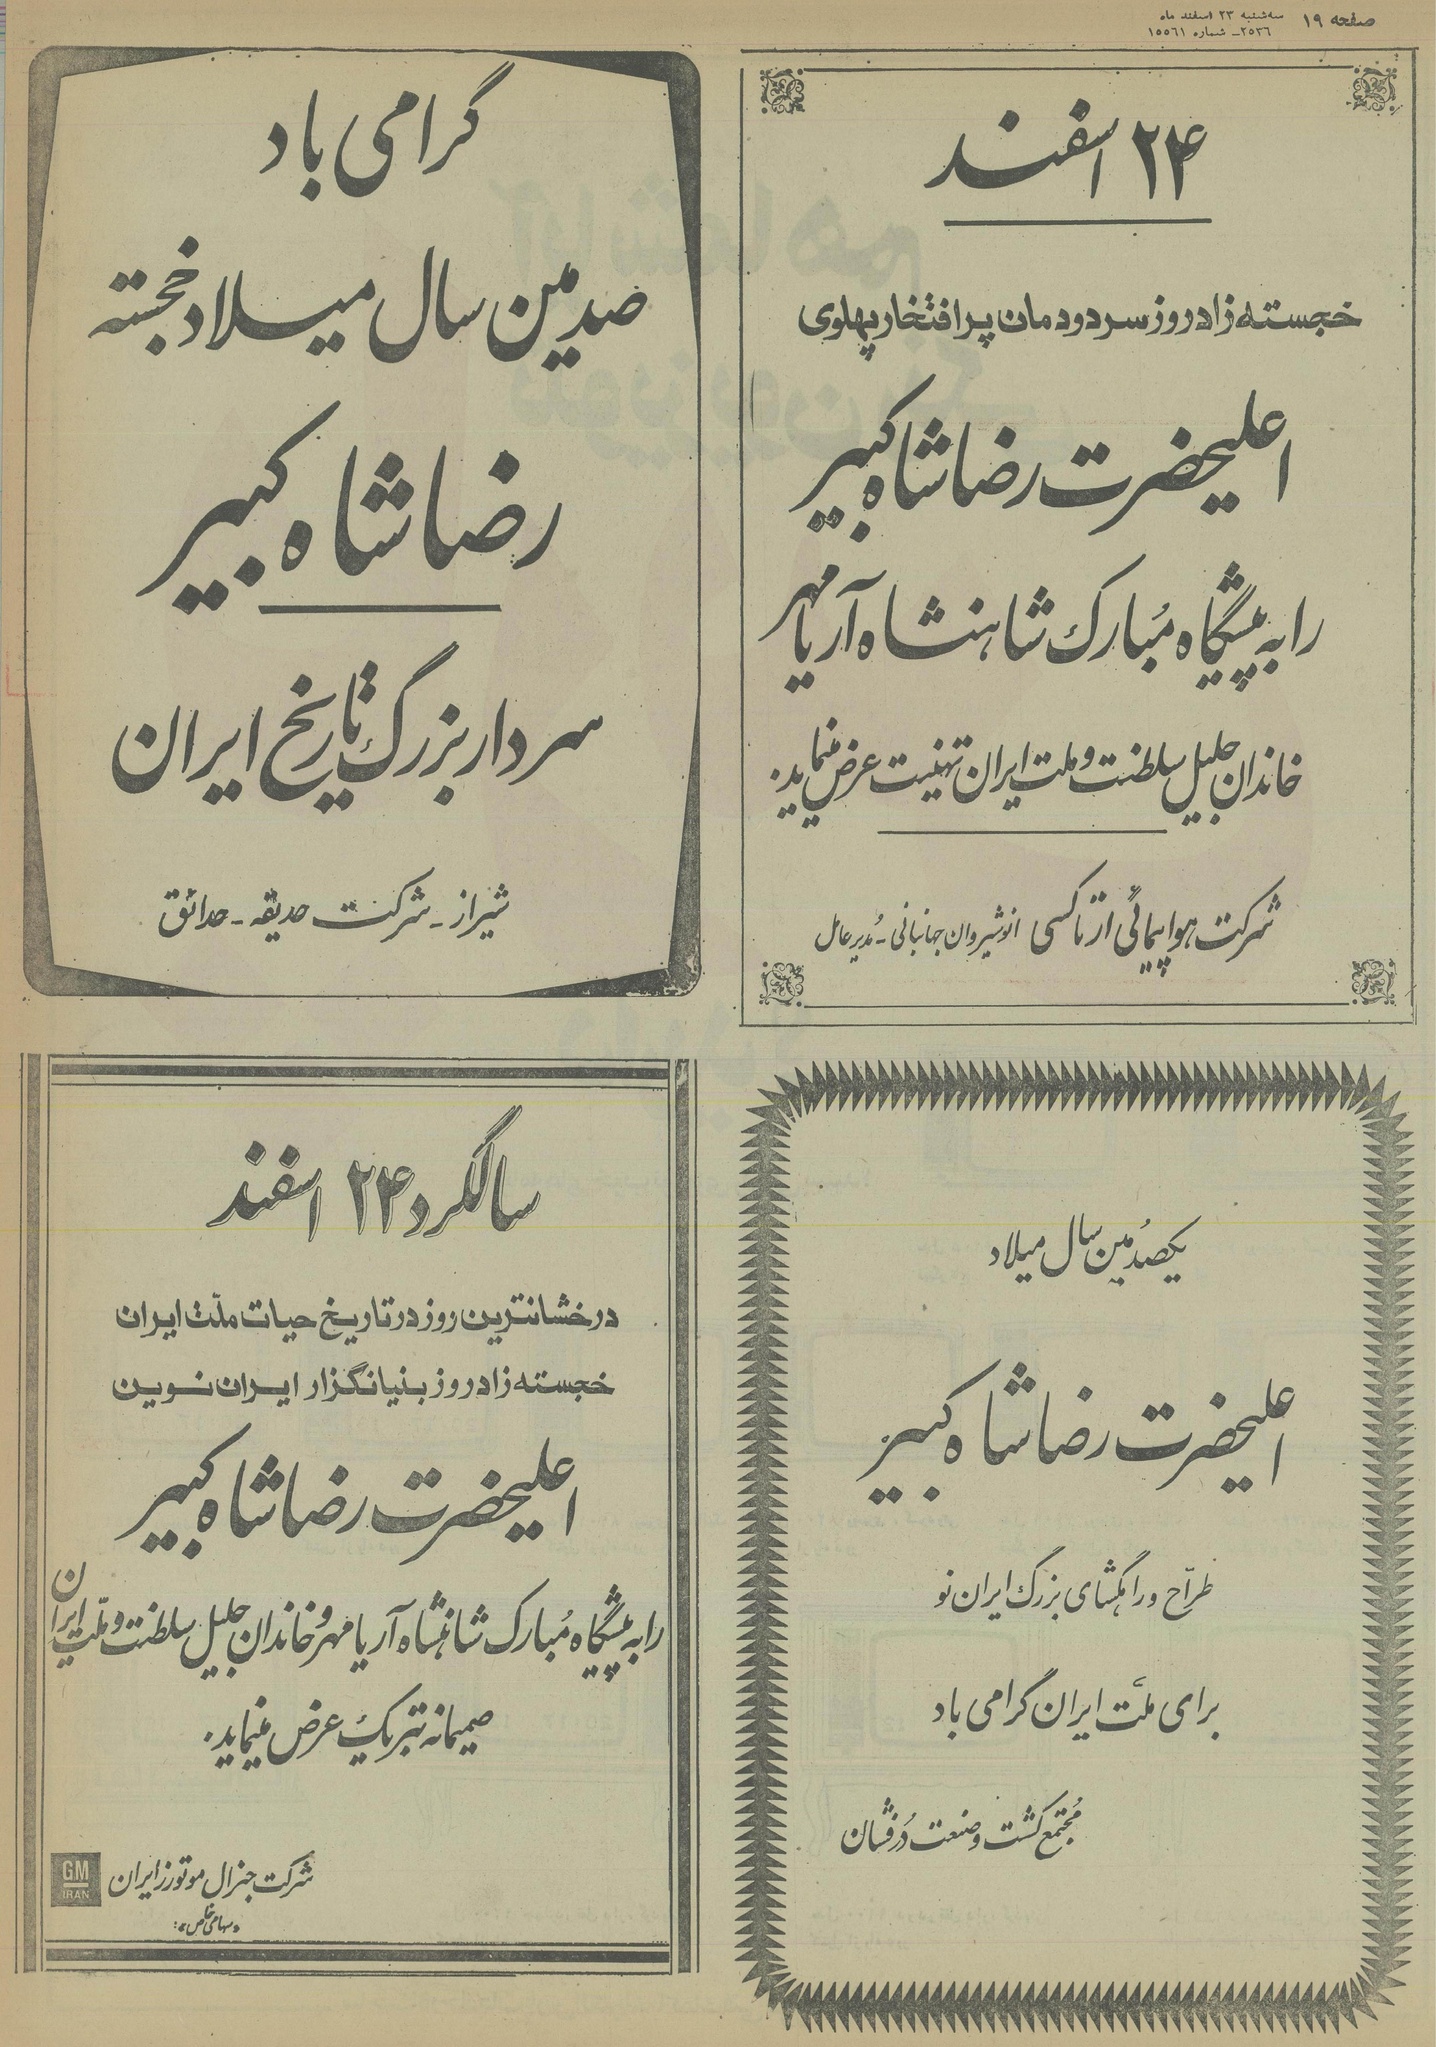 صفحه ۱۹
سه‌شنبه ۲۳ اسفند ماه
۲۵۳۶ـ شماره ۱۵۵۶۱
۲۴ اسفند
خجسته زادروز سر دودمان پرافتخار پهلوی
اعلیحضرت رضا شاه کبیر
را به پیشگاه مُبارک شاهنشاه آریامهر
خاندان جلیل سلطنت و ملت ایران تهنیت عرض مینماید.
شرکت هواپیمائی ارتاکسی انوشیروان جهانبانی ـ مُدیرعامل
گرامی باد
صدمین سال میلاد خجسته
رضا شاه کبیر
سردار بزرگ تاریخ ایران
شیراز ـ شرکت حدیقه ـ حدائق
یکصدُمین سال میلاد
اعلیحضرت رضا شاه کبیر
طرّاح و راهگشای بزرگ ایران نو
برای ملّت ایران گرامی باد
مُجتمع کشت و صنعت دُرفشان
سالگرد ۲۴ اسفند
درخشانترین روز در تاریخ حیات ملّت ایران
خجسته زادروز بنیانگزار ایران نوین
اعلیحضرت رضا شاه کبیر
را به پیشگاه مُبارک شاهنشاه آریامهر و خاندان جلیل سلطنت و ملّت ایران
صمیمانه تبریک عرض مینماید.
شرکت جنرال موتورز ایران
«سهامی خاص»
GM
IRAN